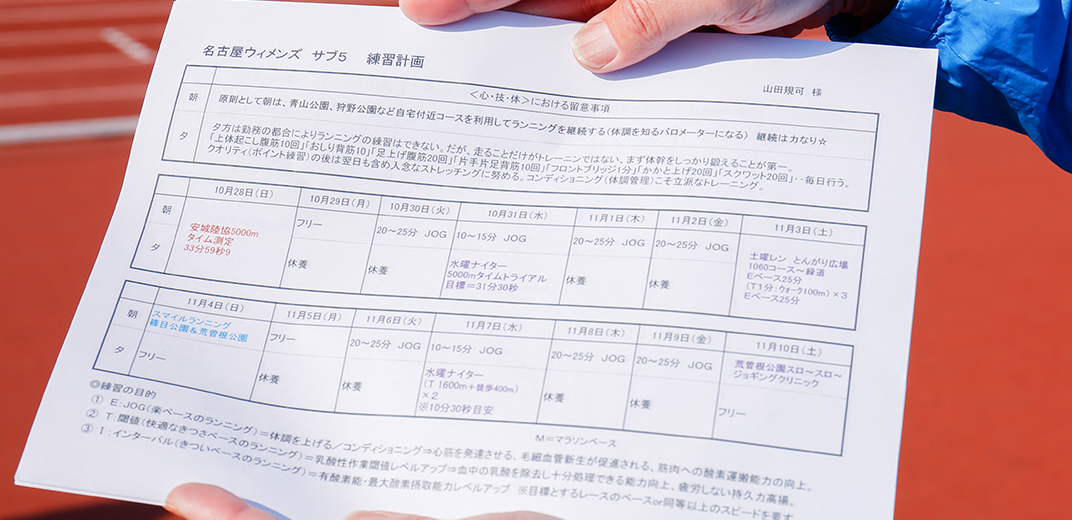 名古屋ウィメンズ サブ5 練習計画
山田規可 様
<心・技・体>における留意事項
朝 原則として朝は、青山公園、狩野公園など自宅付近コースを利用してランニングを継続する(体調を知るバロメーターになる) 継続は力なり☆
夕 夕方は勤務の都合によりランニングの練習はできない。だが、走ることだけがトレーニンではない、まず体幹をしっかり鍛えることが第一。
「上体起こし腹筋10回」「おしり背筋10」「足上げ腹筋20回」「片手片足背筋10回」「フロントブリッジ1分」「かかと上げ20回」「スクワット20回」・・毎日行う。
クオリティ(ポイント練習)の後は翌日も含め入念なストレッチングに努める。コンディショニング(体調管理)こそ立派なトレーニング。
10月28日(日) 10月29日(月) 10月30日(火) 10月31日(水) 11月1日(木) 11月2日(金) 11月3日(土)
朝 フリー 20~25分 JOG 10~15分 JOG 20~25分 JOG 20~25分 JOG
安城陸協5000m
タイム測定
33分59秒9
夕 休養 休養 水曜ナイター 休養 休養
5000mタイムトライアル
目標=31分30秒
土曜レン とんがり広場
1060コース~緑道
Eペース25分
(T1分:ウォーク100m)×3
Eペース25分
11月4日(日) 11月5日(月) 11月6日(火) 11月7日(水) 11月8日(木) 11月9日(金) 11月10日(土)
朝 スマイルランニング フリー 20~25分 JOG 10~15分 JOG 20~25分 JOG 20~25分 JOG 荒曽根公園スロ~スロ~
篠目公園&荒曽根公園 ジョギングクリニック
夕 フリー 休養 休養 水曜ナイター 休養 休養 フリー
(T 1600m+徒歩400m)
×2
※10分30秒目安
◎練習の目的
M=マラソンペース
① E:JOG(楽ペースのランニング)=体調を上げる/コンディショニング⇒心筋を発達させる、毛細血管新生が促進される、筋肉への酸素運搬能力の向上。
② T:閾値(快適なきつさペースのランニング)=乳酸性作業閾値レベルアップ⇒血中の乳酸を除去し十分処理できる能力向上、疲労しない持久力高揚。
③ I:インターバル(きついペースのランニング)=有酸素能・最大酸素摂取能力レベルアップ ※目標とするレースのペースor同等以上のスピードを要す